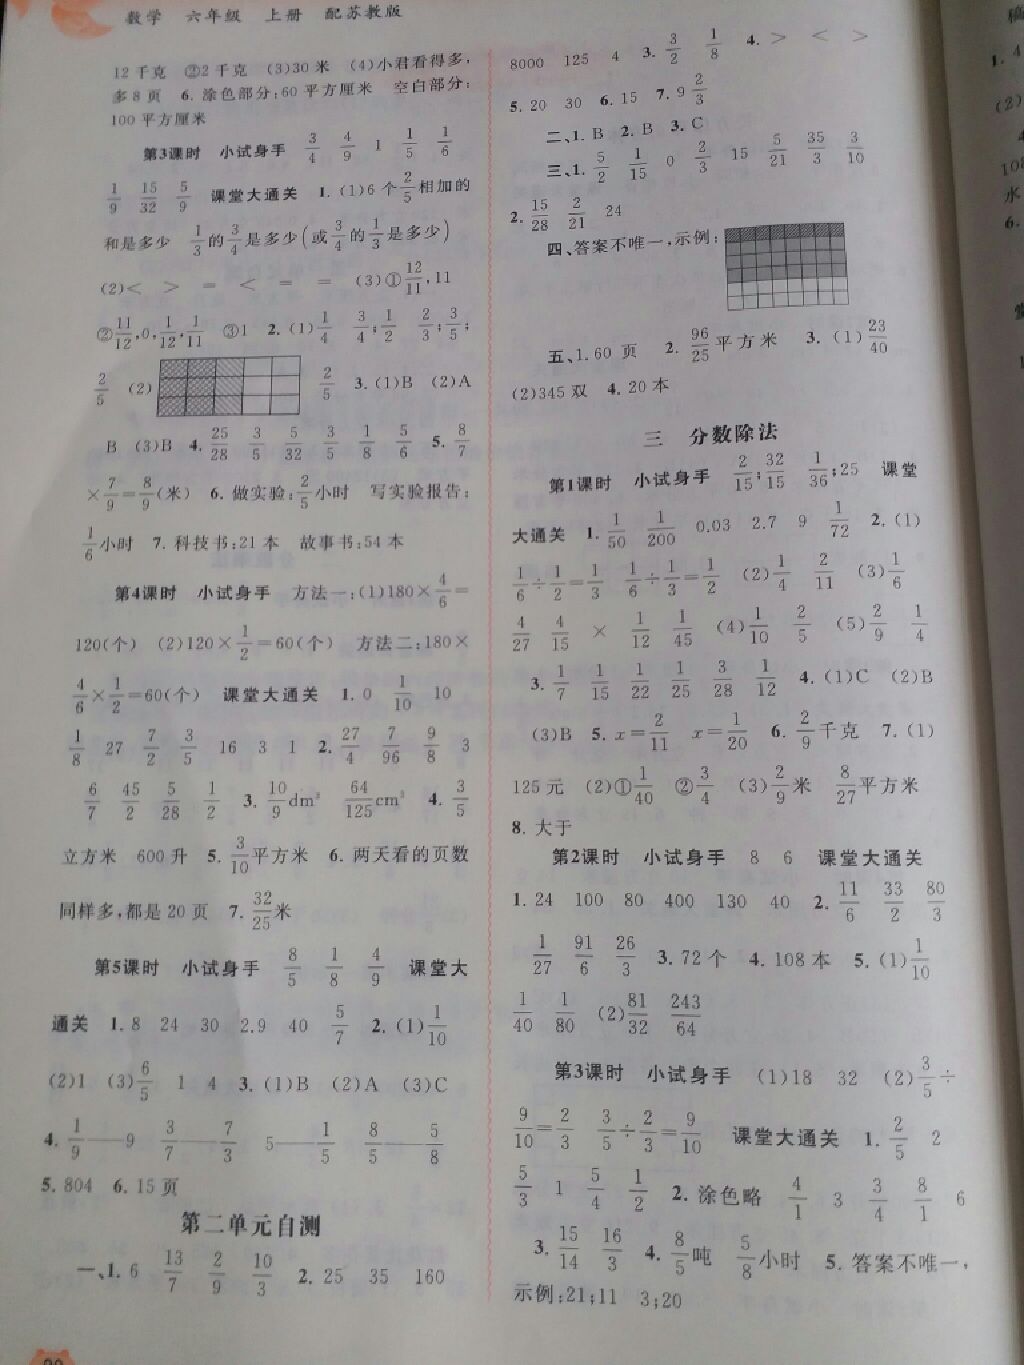 数学 六年级 上册 配苏教版
12千克 ②2千克 (3)30米 (4)小君看得多,
多8页 6. 涂色部分:60平方厘米 空白部分:
100平方厘米
第3课时 小试身手 3/4 4/9 1 1/5 1/6
1/9 15/32 5/9 课堂大通关 1. (1)6个2/5相加的
和是多少 1/3的3/4是多少(或3/4的1/3是多少)
(2)< > = < = = (3)①12/11,11
②11/12,0,1/12,1/11 ③1 2. (1)1/4 3/4;1/2 2/3;3/5;
2/5 (2) 2/5 3. (1)B (2)A
B (3)B 4. 25/28 3/5 5/32 3/5 1/8 5/6 5. 8/7
×7/9=8/9(米) 6. 做实验:2/5小时 写实验报告:
1/6小时 7. 科技书:21本 故事书:54本
第4课时 小试身手 方法一:(1)180×4/6=
120(个) (2)120×1/2=60(个) 方法二:180×
4/6×1/2=60(个) 课堂大通关 1. 0 1/10 10
1/8 27 7/2 3/5 16 3 1 2. 27/4 7/96 9/8 3
6/7 45/2 5/28 1/2 3. 10/9dm³ 64/125cm³ 4. 3/5
立方米 600升 5. 3/10平方米 6. 两天看的页数
同样多,都是20页 7. 32/25米
第5课时 小试身手 8/5 1/8 4/9 课堂大
通关 1. 8 24 30 2.9 40 5/7 2. (1)1/10
(2)1 (3)6/5 1 4 3. (1)B (2)A (3)C
4. 1/9—9 3/7—7/3 5—1/5 8/5—5/8
5. 804 6. 15页
第二单元自测
一、1. 6 13/7 2/9 10/3 2. 25 35 160
8000 125 4 3. 3/2 1/8 4. > < >
5. 20 30 6. 15 7. 9 2/3
二、1. B 2. B 3. C
三、1. 5/2 1/15 0 2/3 15 5/21 35/3 3/10
2. 15/28 2/21 24
四、答案不唯一,示例:
五、1. 60页 2. 96/25平方米 3. (1)23/40
(2)345双 4. 20本
三 分数除法
第1课时 小试身手 2/15;32/15 1/36;25 课堂
大通关 1. 1/50 1/200 0.03 2.7 9 1/72 2. (1)
1/6÷1/2=1/3 1/6÷1/3=1/2 (2)1/4 2/11 (3)1/6
4/27 4/15 × 1/12 1/45 (4)1/10 2/5 (5)2/9 1/4
3. 1/7 1/15 1/22 1/25 3/28 1/12 4. (1)C (2)B
(3)B 5. x=2/11 x=1/20 6. 2/9千克 7. (1)
125元 (2)①1/40 ②3/4 (3)2/9米 8/27平方米
8. 大于
第2课时 小试身手 8 6 课堂大通关
1. 24 100 80 400 130 40 2. 11/6 33/2 80/3
1/27 91/6 26/3 3. 72个 4. 108本 5. (1)1/10
1/40 1/80 (2)81/32 243/64
第3课时 小试身手 (1)18 32 (2)3/5÷
9/10=2/3 3/5÷2/3=9/10 课堂大通关 1. 2/5 2
5/3 1 5/4 1/2 2. 涂色略 4/1 3 3/4 8/1 6
3. 15/14 16/3 4. 8/5吨 5/8小时 5. 答案不唯一,
示例:21;11 3;20